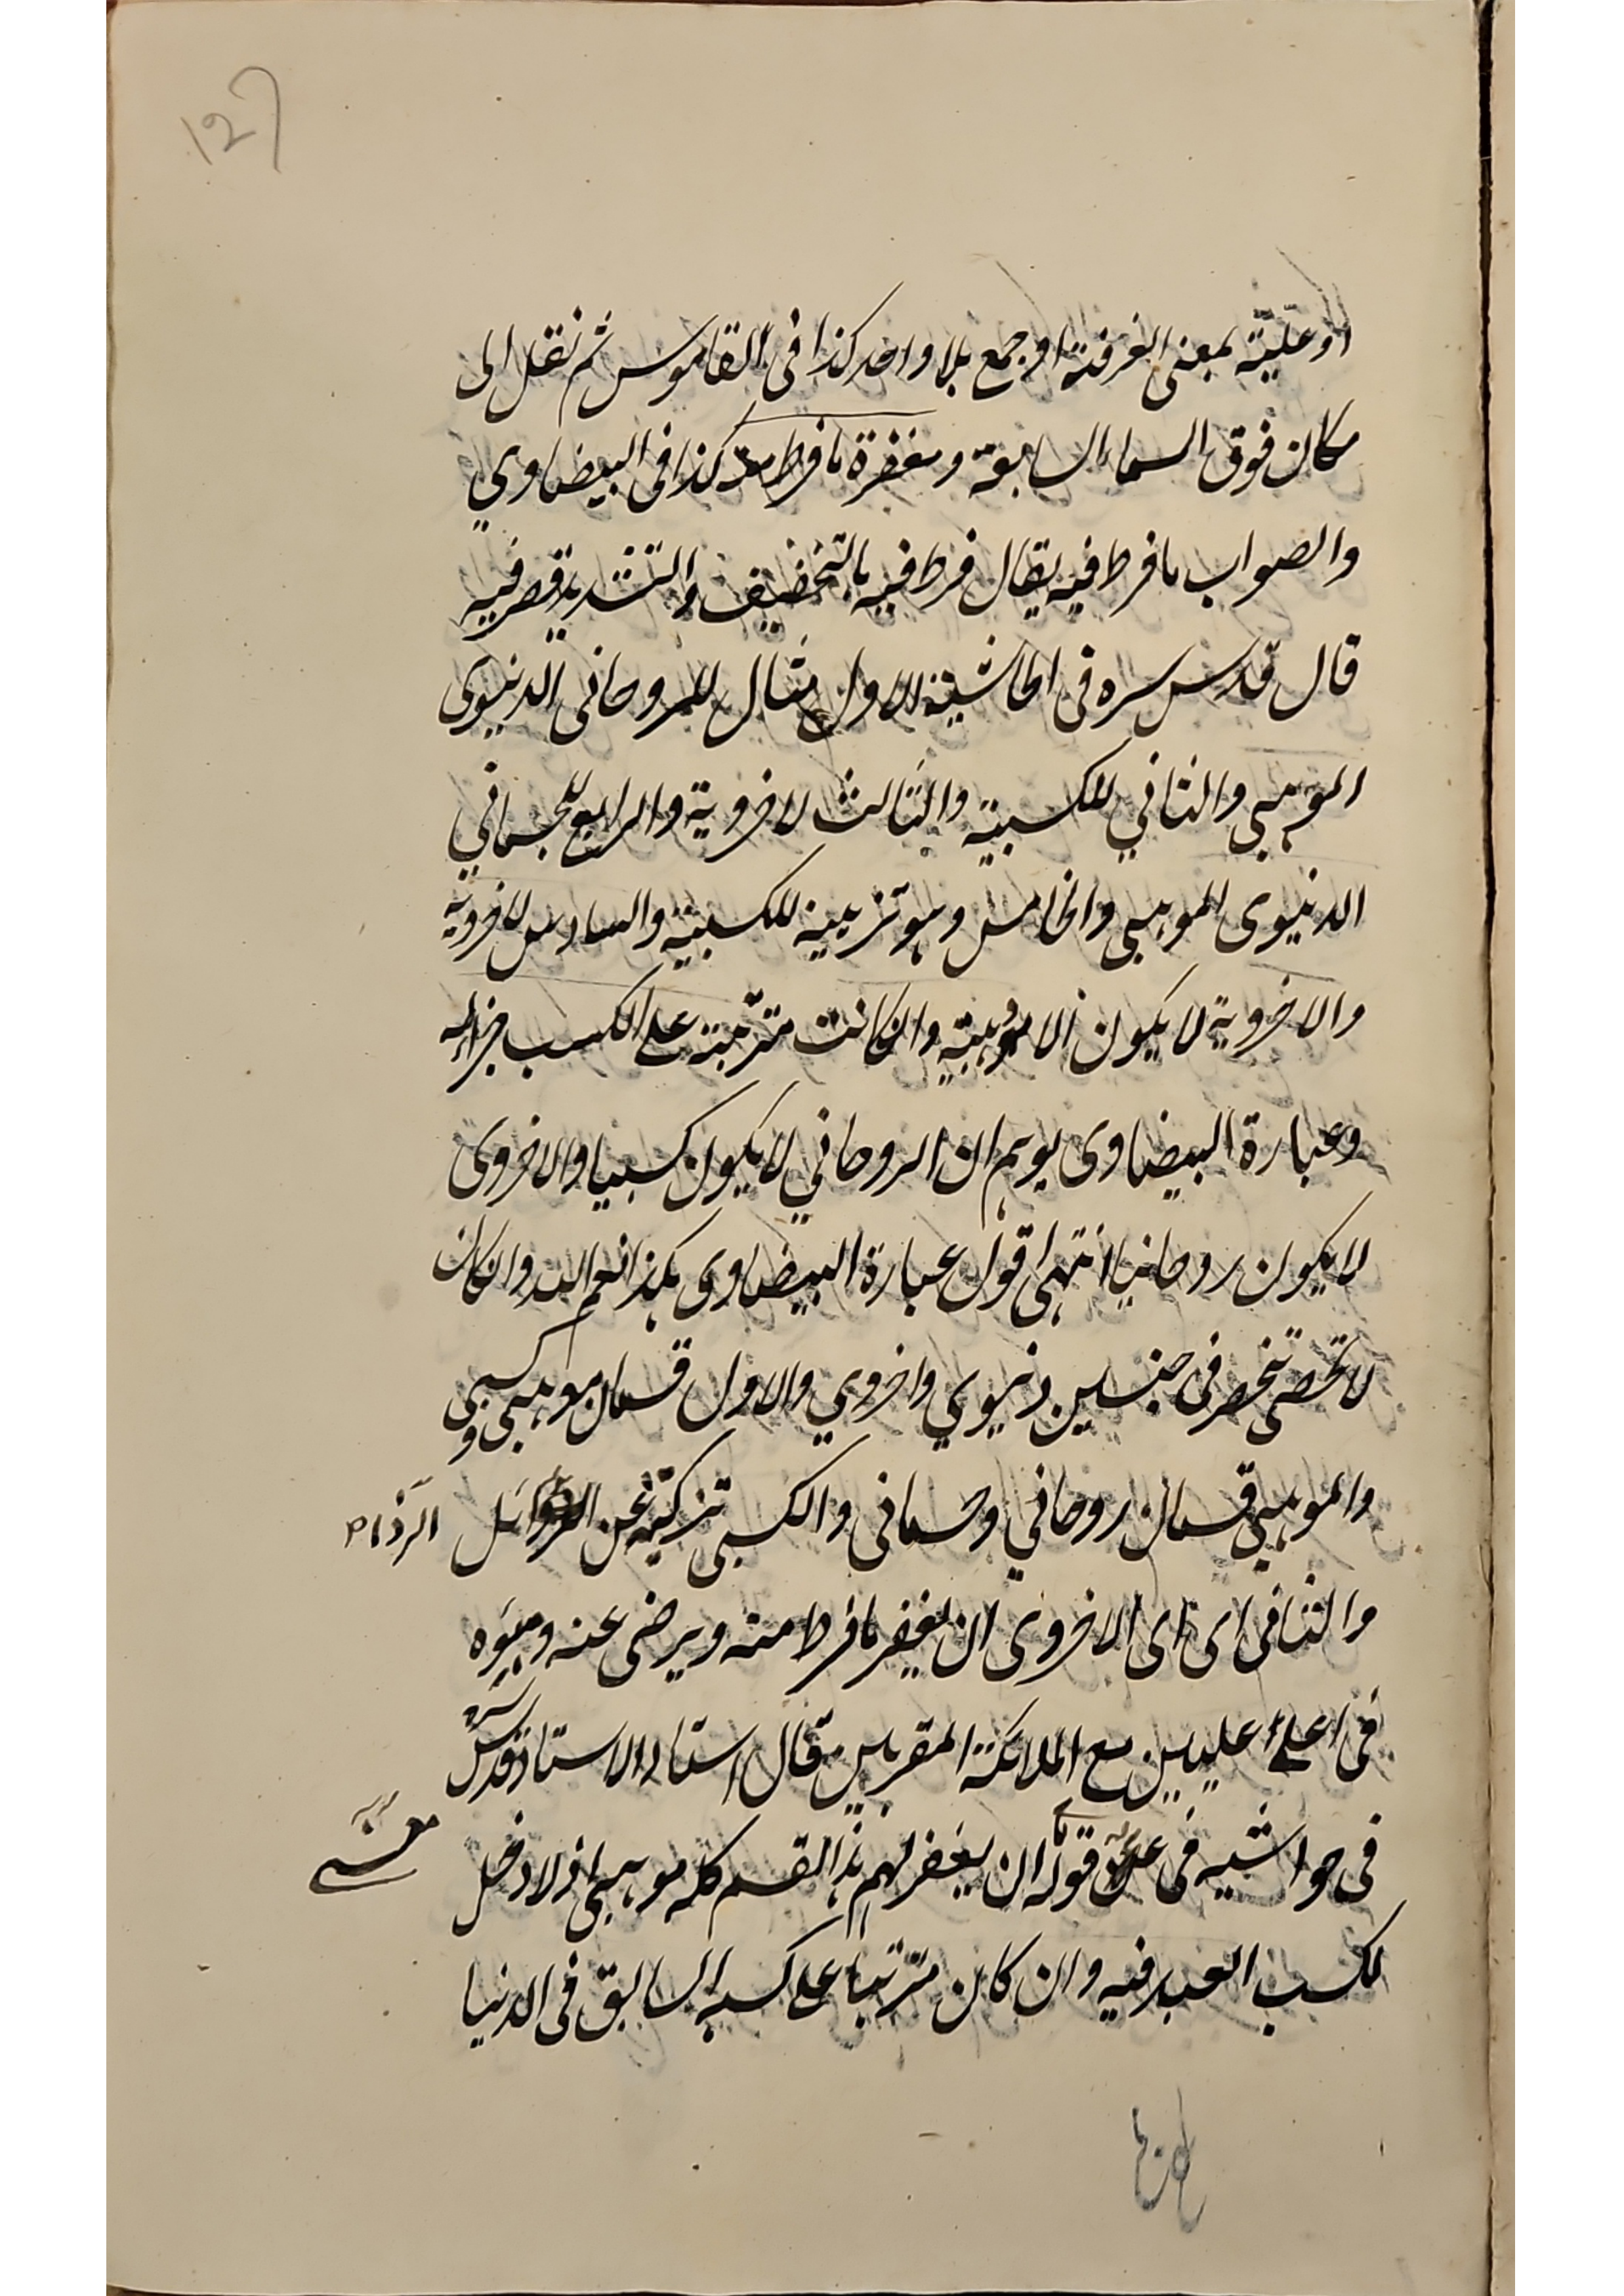 127
او علّيّة بمعنى الغرفة او جمع بلا واحد كذا فى القاموس ثم نقل الى
مكان فوق السماء السابعة ومغفرة ما فرط منه كذا فى البيضاوي
والصواب ما فرط فيه يقال فرط فيه بالتخفيف والتشديد قصر فيه
قال قدس سره فى الحاشية الاول مثال للروحانى الدنيوى
الموهبي والثاني للكسبية والثالث لاخروية والرابع للجسماني
الدنيوى الموهبي والخامس وهو تزيينه للكسبية والسادس لاخروية
والاخروية لا يكون الا موهبية وان كانت مترتبة على الكسب جزائه
وعبارة البيضاوى يوهم ان الروحاني لا يكون كسبيا والاخروى
لا يكون روحانيا انتهى اقول عبارة البيضاوى هكذا نعم الله وان كان
لا تحصى تنحصر فى جنسين دنيوي واخروي والاول قسمان موهبي وكسبي
والموهبي قسمان روحاني وجسمانى والكسبى تزكية عن الرذائل
الرذا
والثانى اى اى الاخروى ان يغفر ما فرط منه ويرضى عنه ويبوه
فى اعلى عليين مع الملائكة المقربين قال استاد الاستاد قدس سره
فى حواشيه فى على قوله ان يغفر لهم هذا القسم كله موهبي اذ لا دخل
لكسب العبد فيه وان كان مترتبا على كسبه السابق فى الدنيا